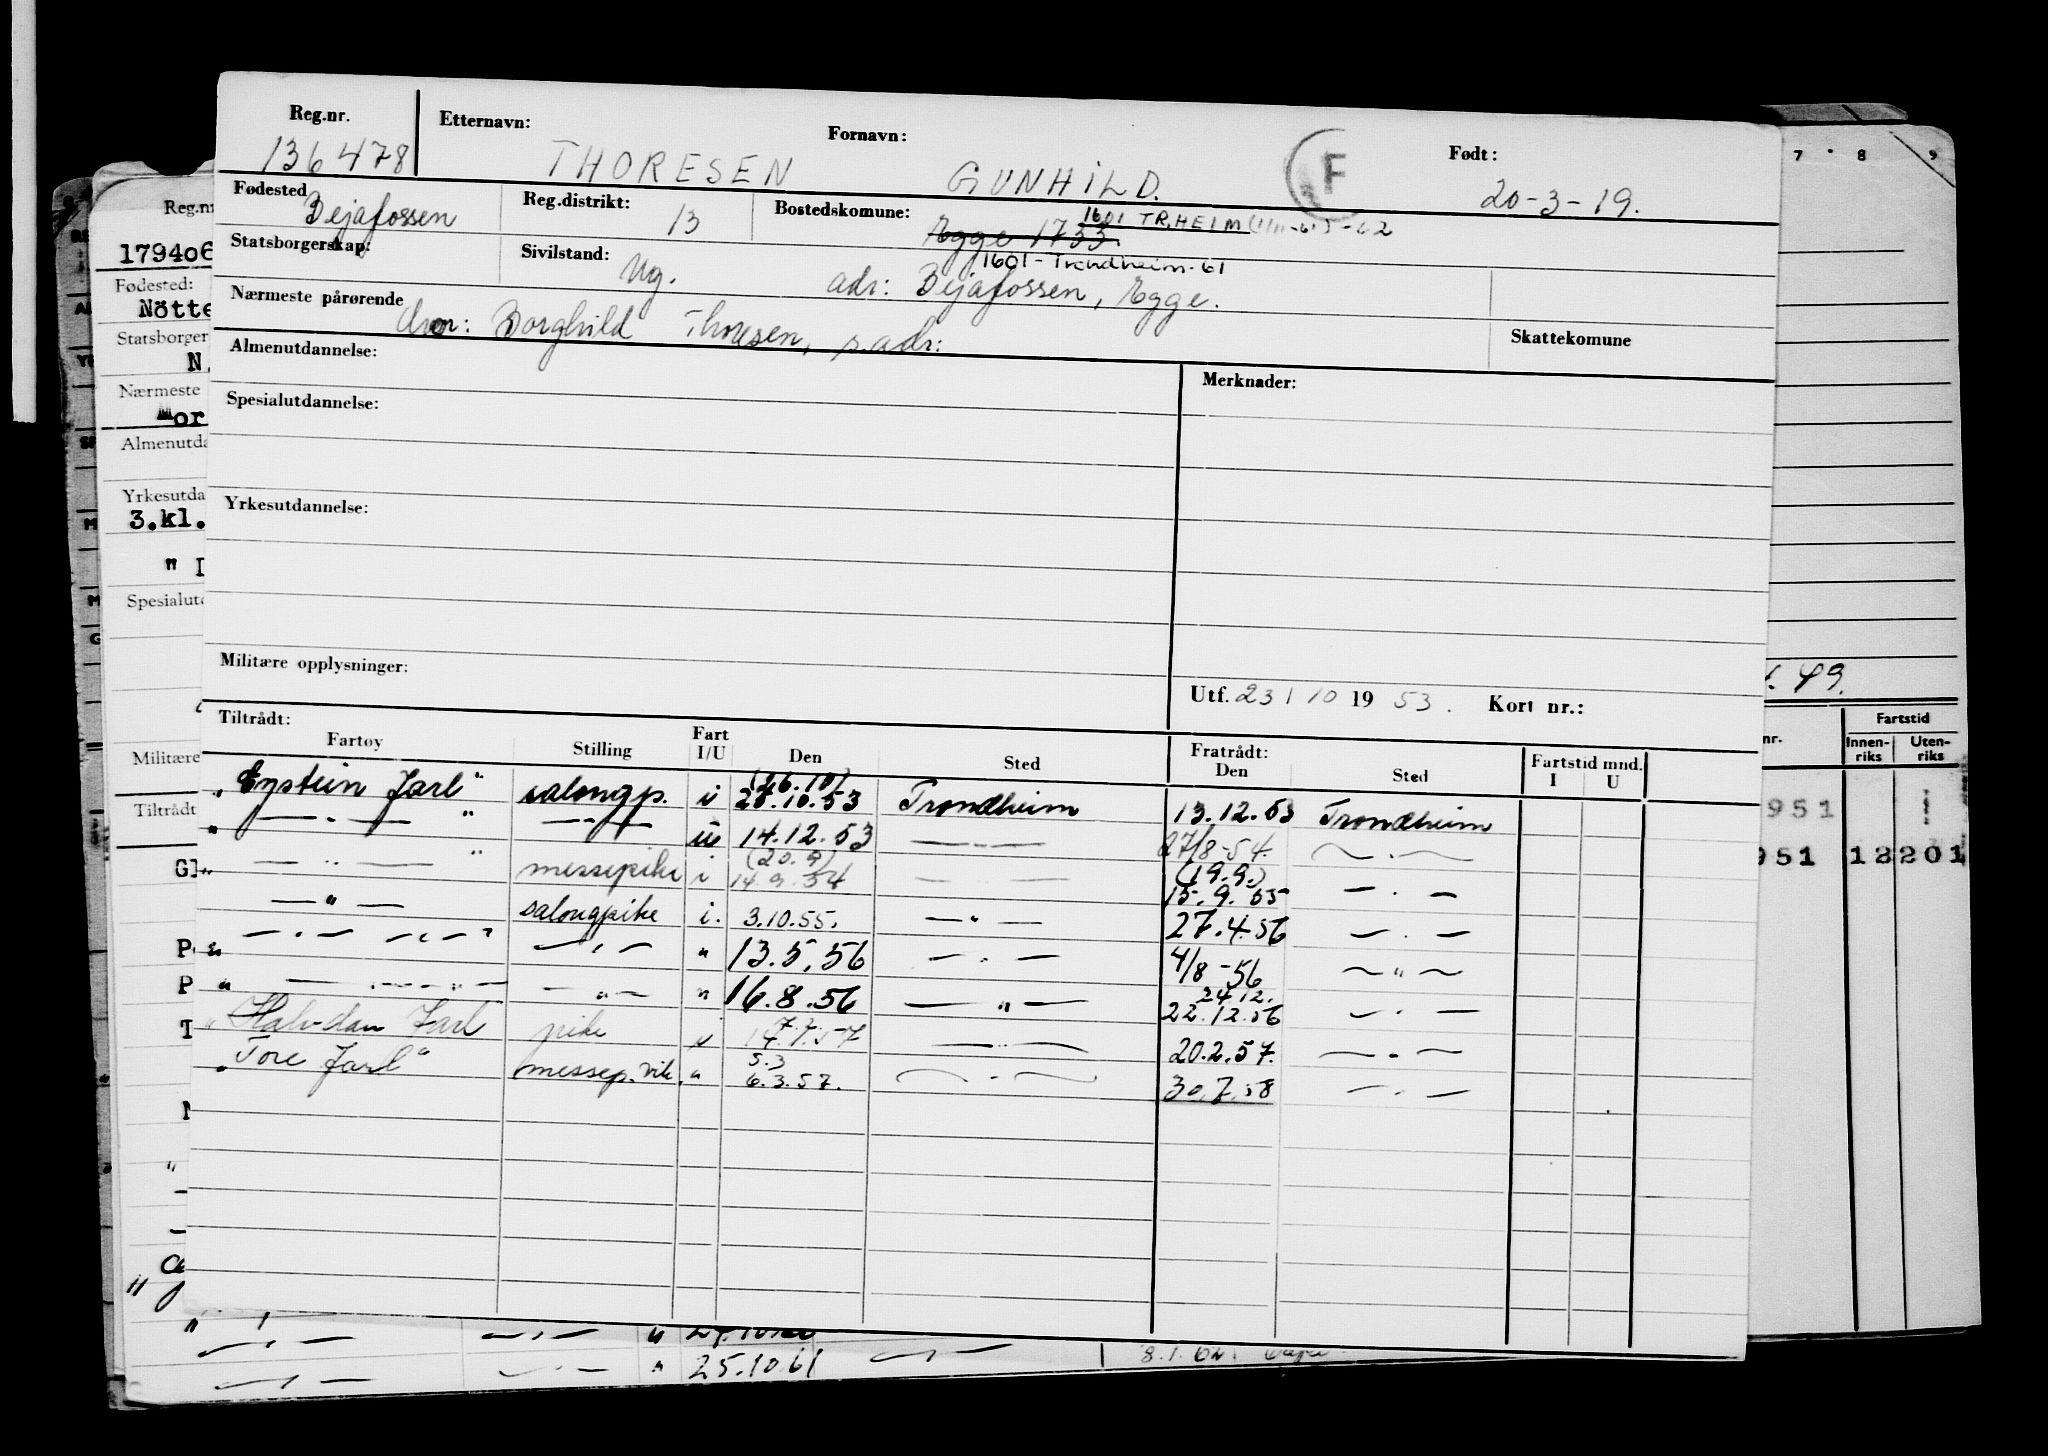 Reg.nr. Etternavn: Fornavn: F Født:
136478 THORESEN GUNHILD. 20-3-19.
Fødested Bejafossen Reg.distrikt: 13 Bostedskomune: Egge 1733 1601 TR.HEIM
1601-Trondheim-61
Statsborgerskap: Sivilstand: Ug. adr: Bejafossen, Egge.
Nærmeste pårørende Mor: Borghild Thoresen, s.adr: Skattekomune
Almenutdannelse: Merknader:
Spesialutdannelse:
Yrkesutdannelse:
Militære opplysninger:
Utf. 23 / 10 19 53. Kort nr.:
Tiltrådt: Fratrådt:
Fartøy Stilling Fart I/U Den Sted Den Sted Fartstid mnd. I U
(26.10)
"Eystein Jarl" salongp. i 28.10.53 Trondheim 13.12.53 Trondheim
" — " — " — " — u 14.12.53 — " — 27/8-54. — " —
(20.9) (19.9.)
— " — " messepike i 14.9.54 — " — 15.9.55 — " —
— " — salongpike i. 3.10.55. — " — 27.4.56 — " —
" — " — — " — " — " — " 13.5.56 — " — 4/8-56 — " —
24.12.
" — " — — " — " 16.8.56 — " — 22.12.56 — " —
"Halvdan Jarl pike i — " — 20.2.57. — " —
5.3
"Tore Jarl" messep.vik. " 6.3.57. — " — 30.7.58 — " —
Reg.nr
179406
Fødested:
Nötte
Statsborger
N.
Nærmeste
or
Almenutda
Yrkesutda
3.kl.
" I
Spesialut
Militære
Tiltrådt
Gl
P
P
T
7 8 9
49.
nr. Fartstid
Innen-riks Uten-riks
951 1
951 12 201
— " — — " — "
— " — — " — " 25.10.61 — " — 8.1.62